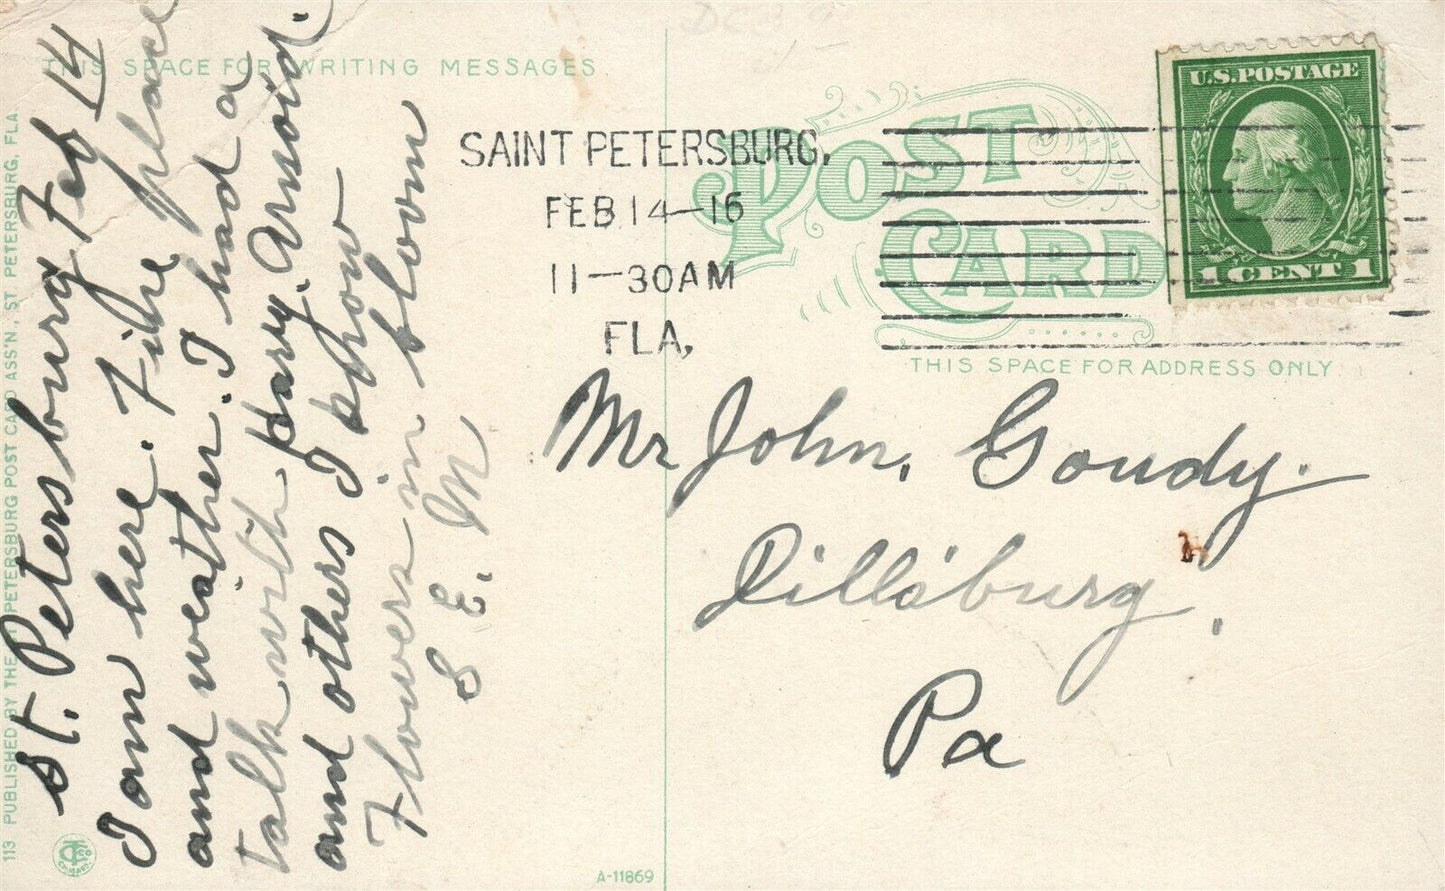 THIS SPACE FOR WRITING MESSAGES
St. Petersburg Feb 14
I am here. Fine place
and weather. I had a
talk with Harry. Arnsoid.
and others I show
Flowers in bloom
S. E. M
113 PUBLISHED BY THE ST PETERSBURG POST CARD ASS'N, ST PETERSBURG, FLA
A-11869
SAINT PETERSBURG,
FEB 14-16
11-30AM
FLA,
U.S. POSTAGE
1 CENT 1
POST
CARD
THIS SPACE FOR ADDRESS ONLY
Mr John, Goudy.
Dillsburg,
Pa